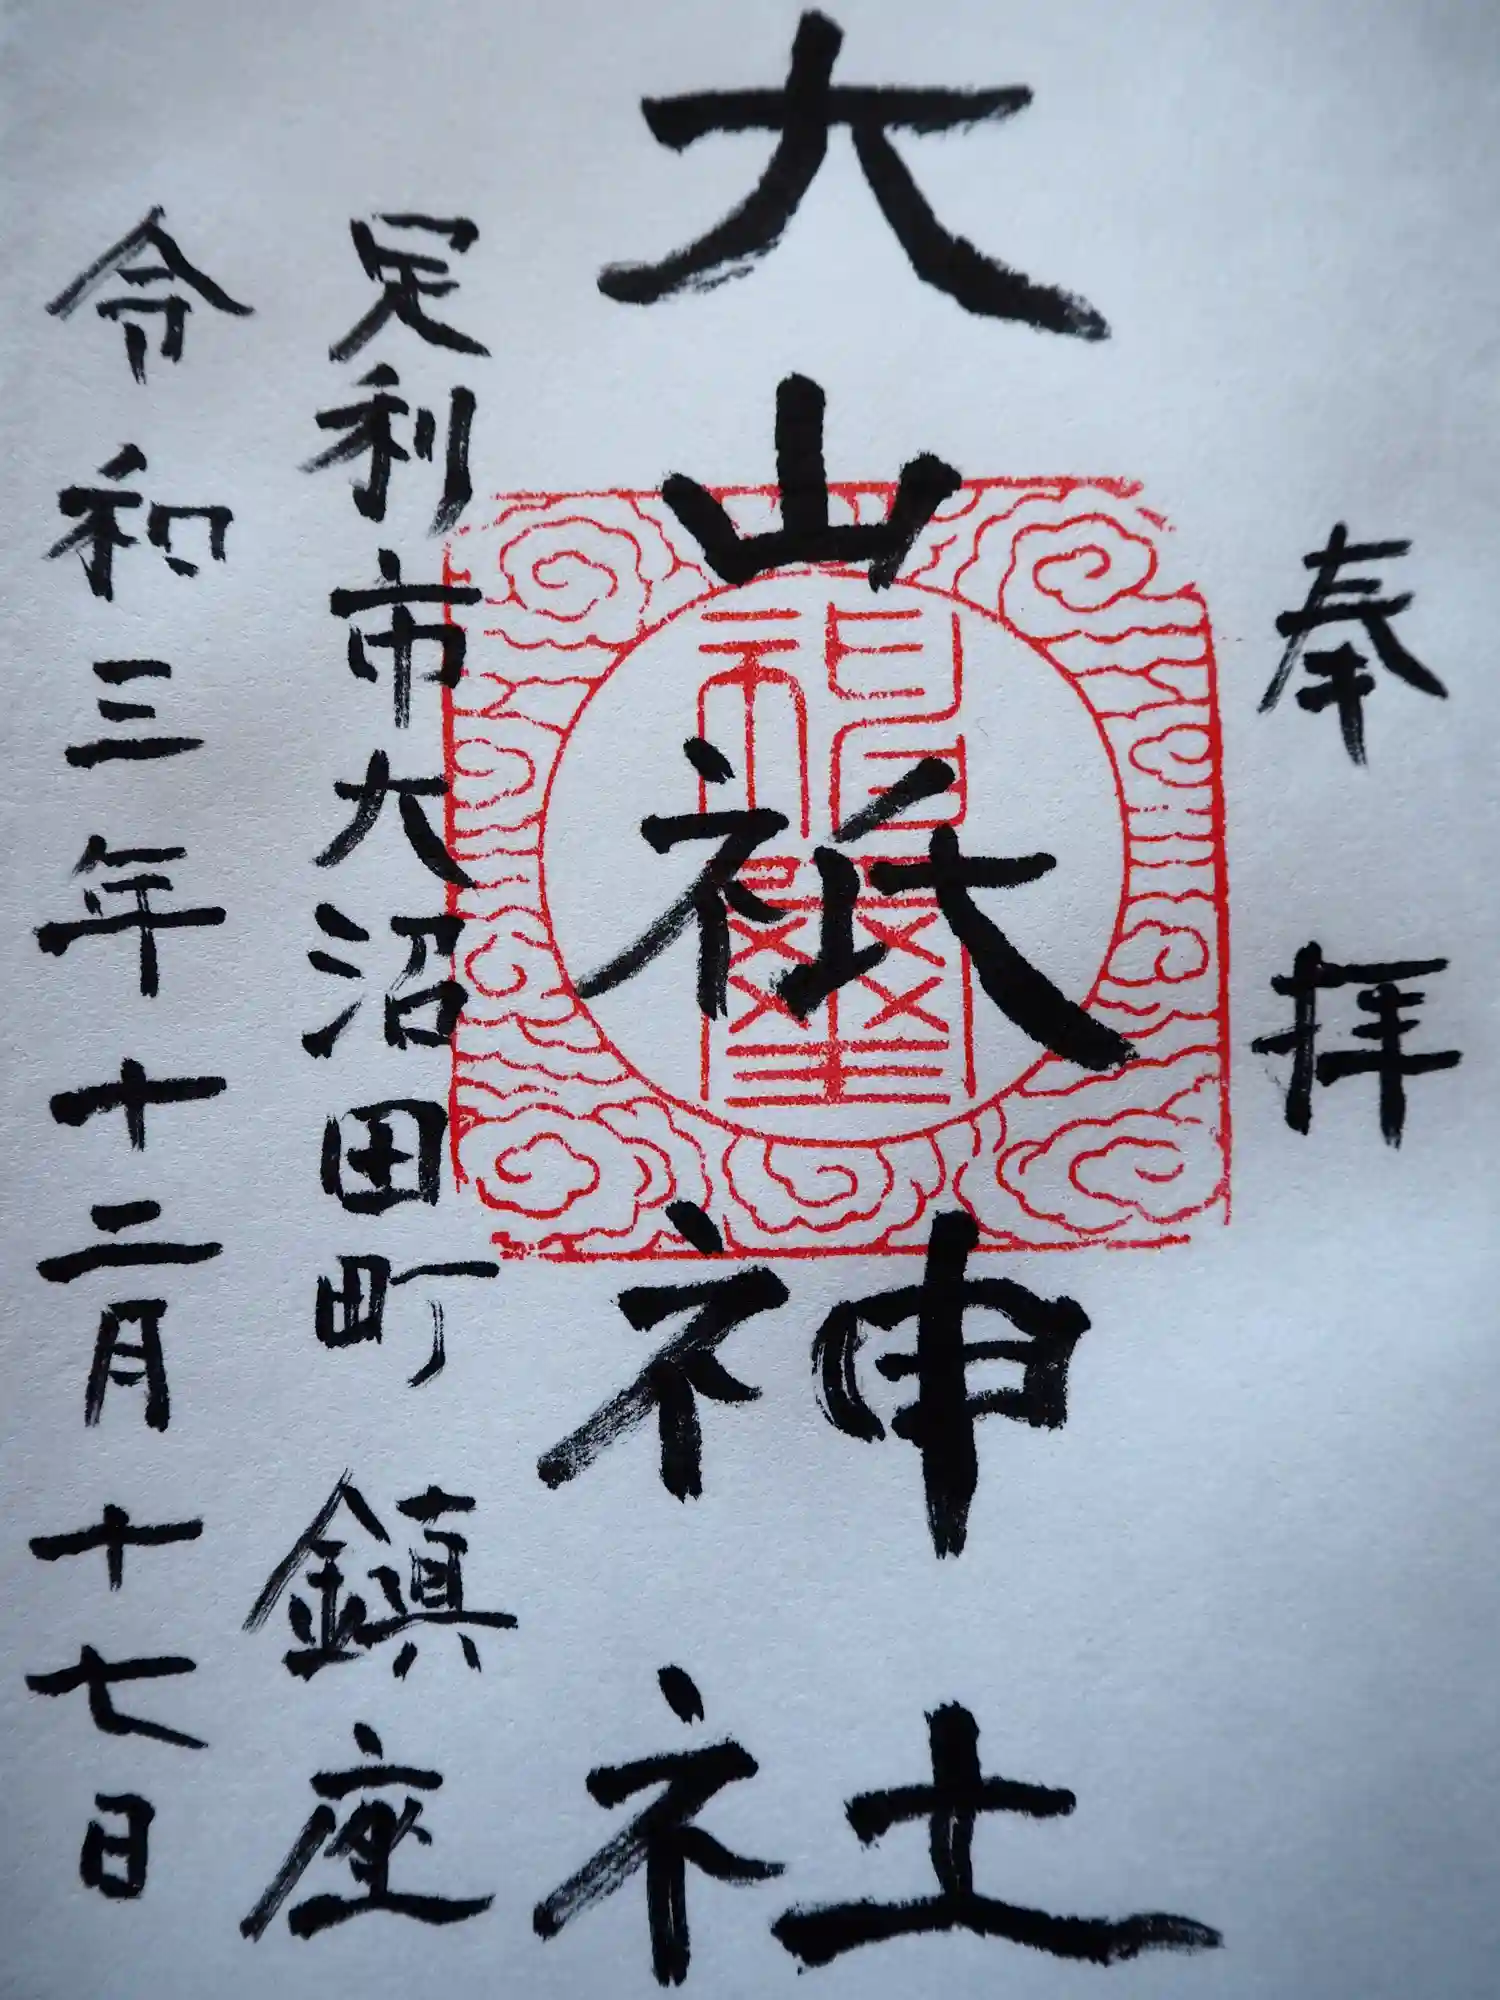 奉拝
大山祇神社
足利市大沼田町 鎮座
令和三年十二月十七日